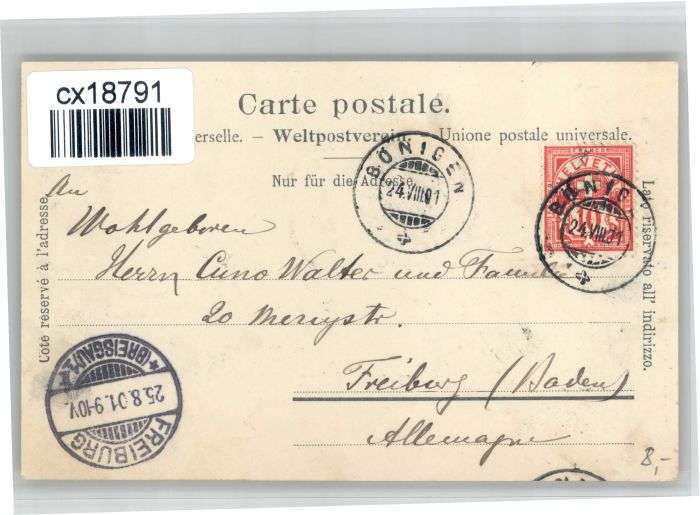 cx18791
Carte postale.
erselle. – Weltpostverein. Unione postale universale.
Nur für die Adresse.
BÖNIGEN
24.VIII.01
HELVETIA
BÖNIG
24.VIII.01
Côté réservé à l'adresse.
Lato riservato all' indirizzo.
An
Wohlgeboren
Herrn Cuno Walter und Familie
20 str.
Freiburg (Baden)
Allemagne
FREIBURG
25.8.01.9-10V.
(BREISGAU)1
8,-